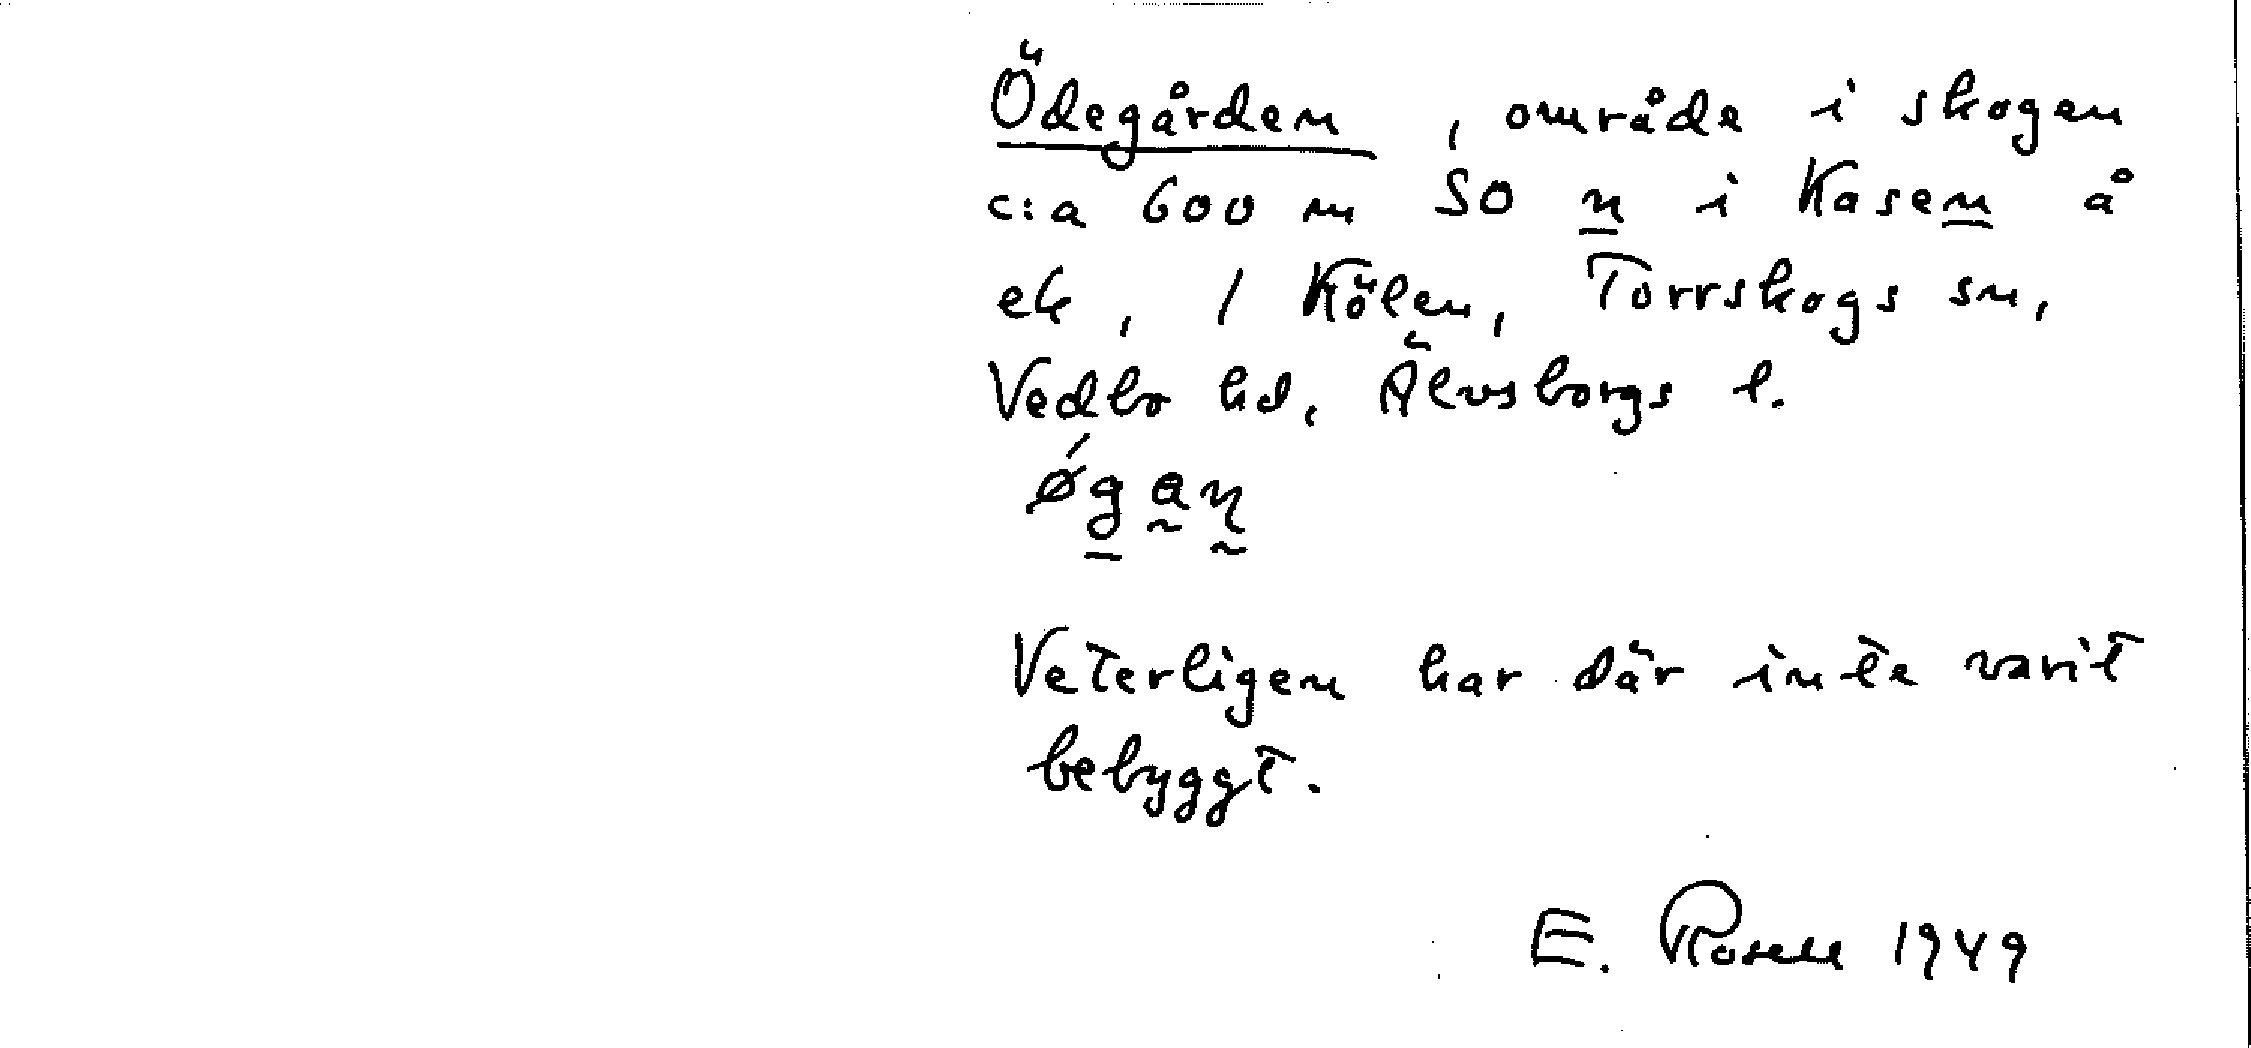 Ödegården, område i skogen
c:a 600 m SO n i Kasen å
ek, 1 Kölen, Torrskogs sn,
Vedbo hd, Älvsborgs l.
Veterligen har där inte varit
bebyggt.
E. Rosell 1949